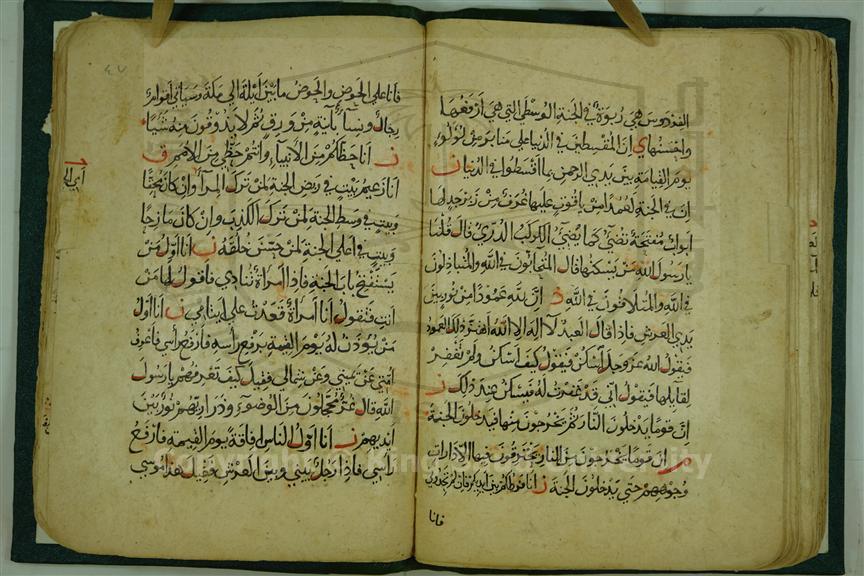 الفردوس هي ربوة في الجنة الوسطى التي هي ارفعها
واحسنها ان المقسطين في الدنيا على منابر من لؤلؤ
يوم القيامة بين يدي الرحمن بما اقسطوا في الدنيا ن
ان في الجنة لعمدا من ياقوت عليها غرف من زبرجد لها
ابواب مفتحة تضيء كما يضيء الكوكب الدري قال قلنا
يا رسول الله من يسكنها قال المتحابون في الله والمتباذلون
في الله والمتلاقون في الله ان لله عمودا من نور بين
يدي العرش فاذا قال العبد لا اله الا الله اهتز ذلك العمود
فيقول الله عز وجل اسكن فيقول كيف اسكن ولم تغفر
لقايلها فيقول اني قد غفرت له فيسكن عند ذلك ن
ان قوما يدخلون النار ثم يخرجون منها فيدخلون الجنة
ان قوما يخرجون من النار يحترقون فيها الا دارات
وجوههم حتى يدخلون الجنة ن انا فرطكم بين ايديكم فان لم تجدوني
فانا
فانا على الحوض والحوض ما بين ايلة الى مكة وسياتي اقوام
رجال ونساء بآنية من ورق ثم لا يذوقون منه شيا
ن انا حظكم من الانبياء وانتم حظي من الامم ق
انا زعيم ببيت في ربض الجنة لمن ترك المراء وان كان محقا
وببيت في وسط الجنة لمن ترك الكذب وان كان مازحا
وببيت في اعلى الجنة لمن حسن خلقه انا اول من
يستفتح باب الجنة فاذا امراة تنادي فاقول لها من
انت فتقول انا امرأة قعدت على ايتامي ن انا اول
من يؤذن له يوم القيمة برفع راسه فارفع رأسي فاعرف
امتي عن يميني وعن شمالي فقيل كيف تعرفهم يا رسول
الله قال غر محجلون من الوضوء وذراريهم نور بين
ايديهم ن انا اول الناس افاقة يوم القيمة فارفع
راسي فاذا رجل بيني وبين العرش فقيل هذا موسى